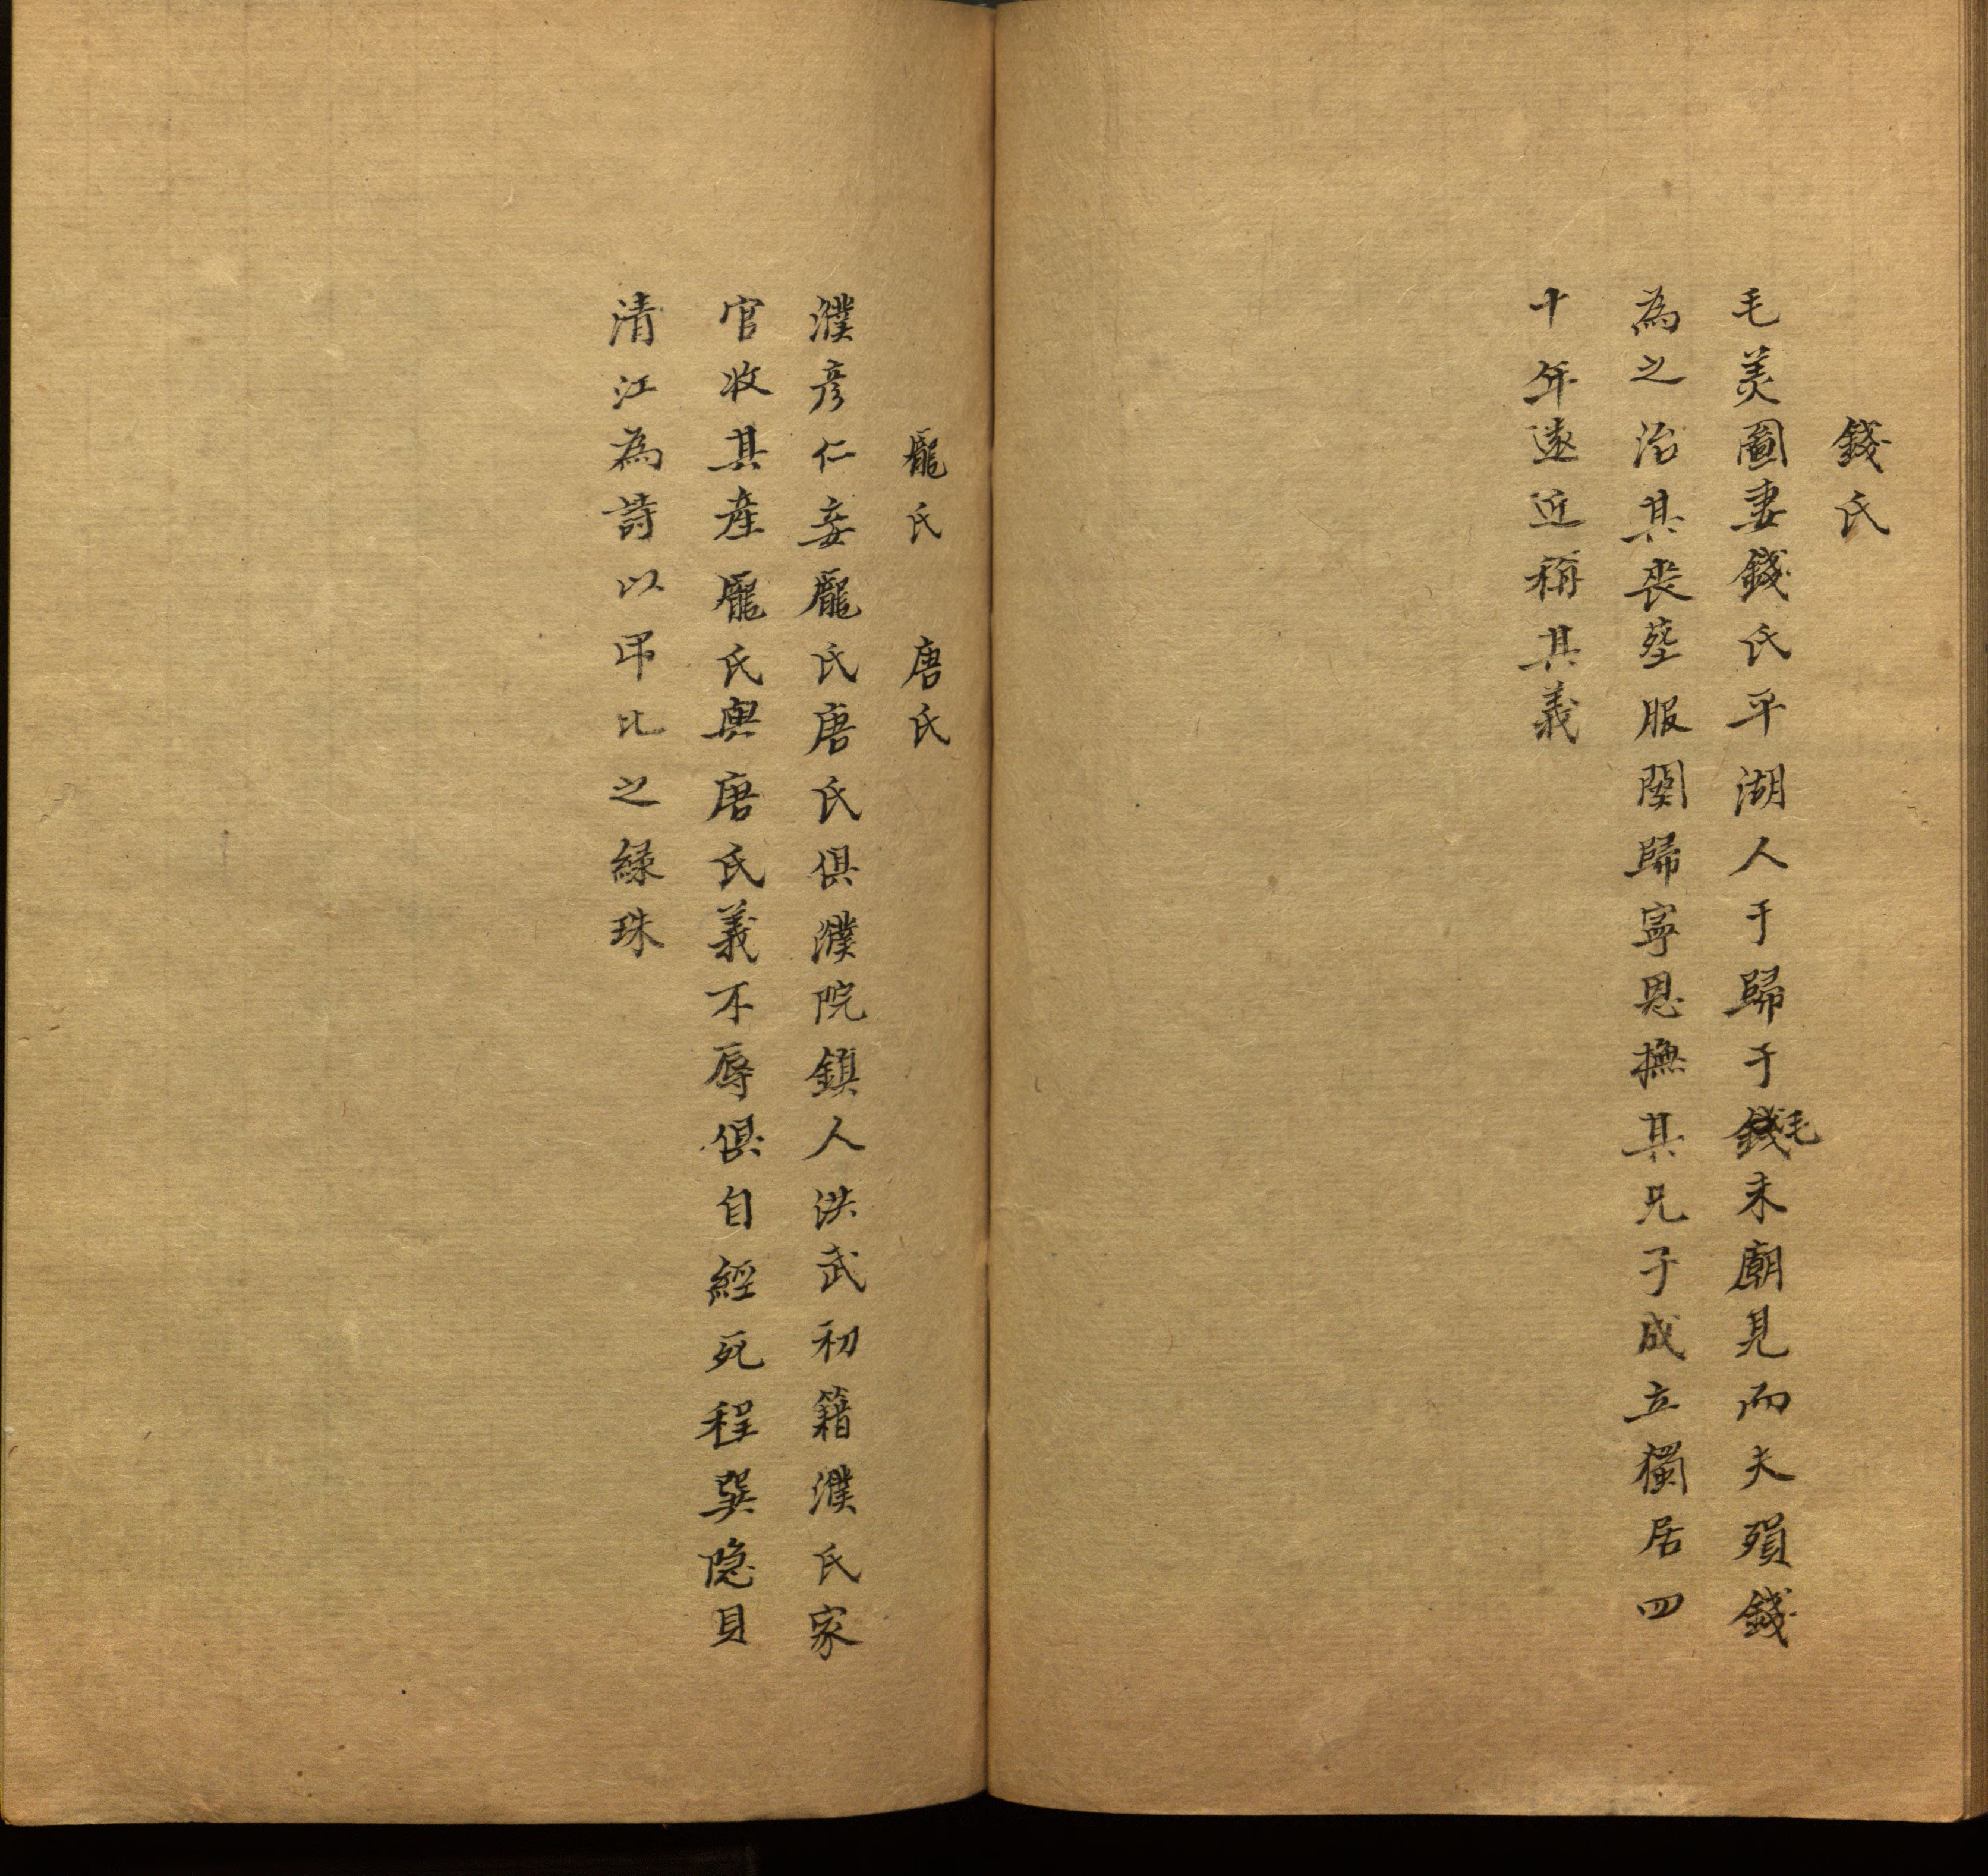 錢氏
毛美圖妻錢氏平湖人于歸于錢毛未廟見而夫殞錢
為之治其喪塟服闋歸寧恩撫其兄子成立獨居四
十年遠近稱其義
龐氏　唐氏
濮彦仁妾龐氏唐氏俱濮院鎮人洪武初籍濮氏家
官收其産龐氏與唐氏義不辱俱自經死程巽隐貝
清江為詩以吊比之緑珠